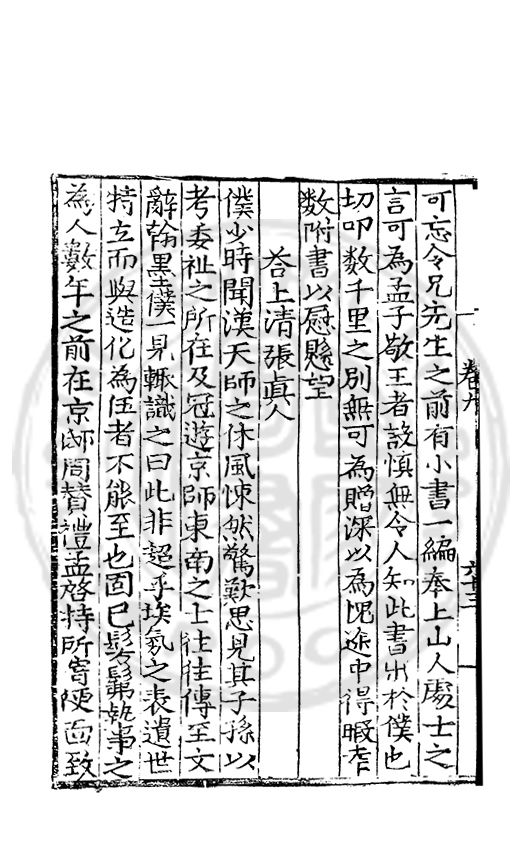 可忘令兄先生之前有小書一編奉上山人處士之
言可為孟子敬王者設慎無令人知此書出於僕也
切叩数千里之別無可為贈深以為愧途中得暇
数附書以慰懸望
答上清張真人
僕少時聞漢天師之休風悚然驚歎思見其子孫以
考委祉之所在及冠遊京師東南之士往往傳至文
辭翰墨僕一見輒識之曰此非超乎埃氛之表遺世
特立而與造化為伍者不能至也固已髣髴執事之
為人數年之前在京邸周贊禮孟啓持所寄便面致
卷九